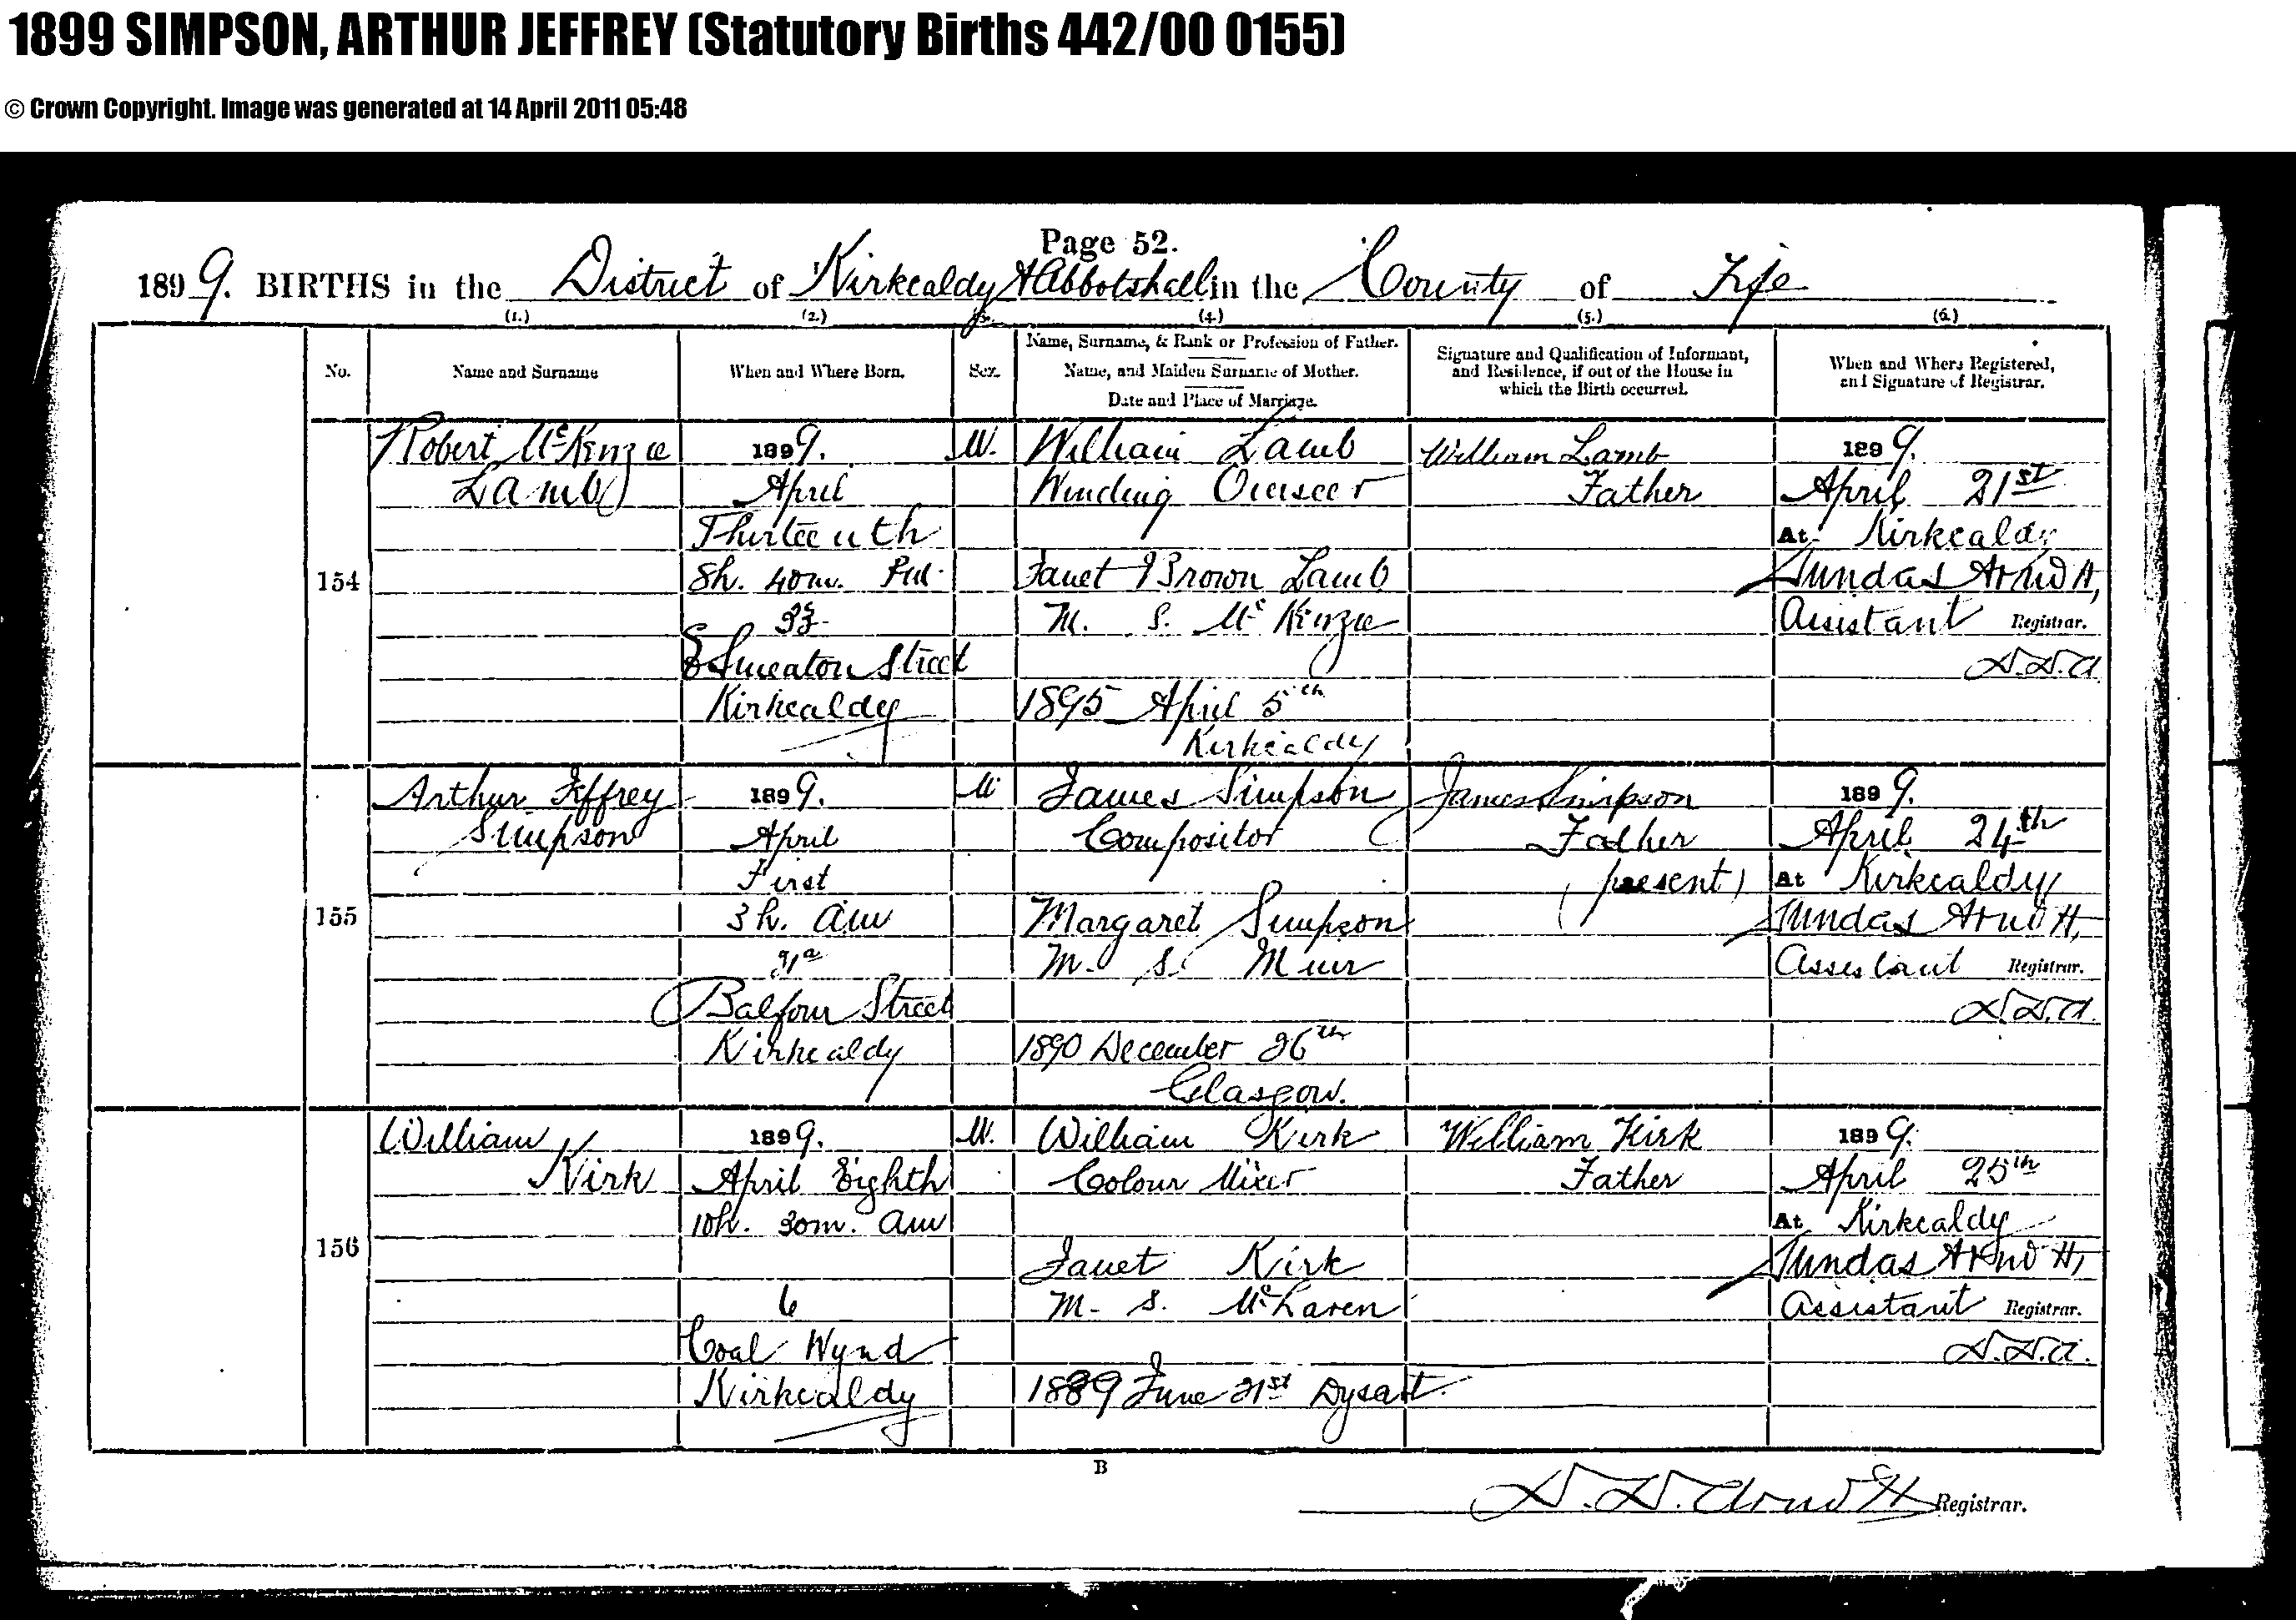 1899 SIMPSON, ARTHUR JEFFREY (Statutory Births 442/00 0155)
© Crown Copyright. Image was generated at 14 April 2011 05:48
Page 52.
1899. BIRTHS in the District of Kirkcaldy & Abbotshall in the County of Fife
(1.) (2.) 3. (4.) (5.) (6.)
No.
Name and Surname
When and Where Born.
Sex.
Name, Surname, & Rank or Profession of Father.
Name, and Maiden Surname of Mother.
Date and Place of Marriage.
Signature and Qualification of Informant,
and Residence, if out of the House in
which the Birth occurred.
When and Where Registered,
and Signature of Registrar.
154
Robert McKenzie
Lamb
1899.
April
Thirteenth
8h. 40m. P.M.
Smeaton Street
Kirkcaldy
M.
William Lamb
Winding Overseer
Janet Brown Lamb
M. S. McKenzie
1895 April 5th
Kirkcaldy
William Lamb
Father
1899.
April 21st
At Kirkcaldy
Dundas
Assistant Registrar.
D.D.A.
155
Arthur Jeffrey
Simpson
1899.
April
First
3h. AM
Balfour Street
Kirkcaldy
M
James Simpson
Compositor
Margaret Simpson
M. S. Muir
1890 December 26th
Glasgow.
James Simpson
Father
(present)
1899.
April 24th
At Kirkcaldy
Dundas
Assistant Registrar.
D.D.A.
156
William
Kirk
1899.
April Eighth
10h. 30m. AM
6
Coal Wynd
Kirkcaldy
M.
William Kirk
Colour Mixer
Janet Kirk
M. S. McLaren
1889 June 21st Dysart.
William Kirk
Father
1899.
April 25th
At Kirkcaldy
Dundas
Assistant Registrar.
D.D.A.
B
D. D. Registrar.